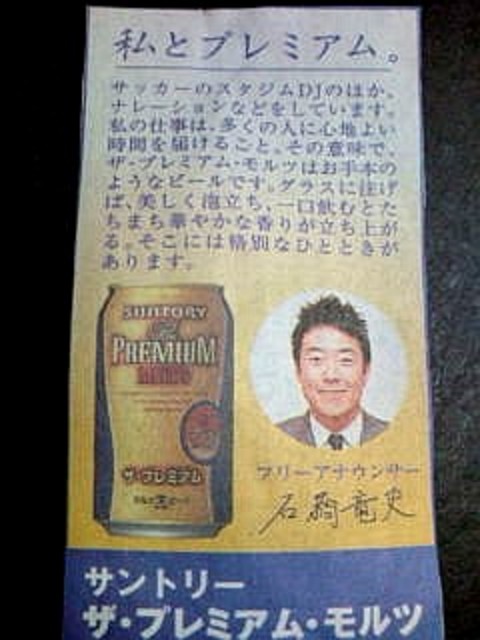 私とプレミアム。
サッカーのスタジアムDJのほか、
ナレーションなどをしています。
私の仕事は、多くの人に心地よい
時間を届けること。その意味で、
ザ・プレミアム・モルツはお手本の
ようなビールです。グラスに注げ
ば、美しく泡立ち、一口飲むとた
ちまち華やかな香りが立ち上が
る。そこには格別なひとときが
あります。
SUNTORY
The
PREMIUM
MALT'S
ザ・プレミアム
フリーアナウンサー
石橋竜史
サントリー
ザ・プレミアム・モルツ